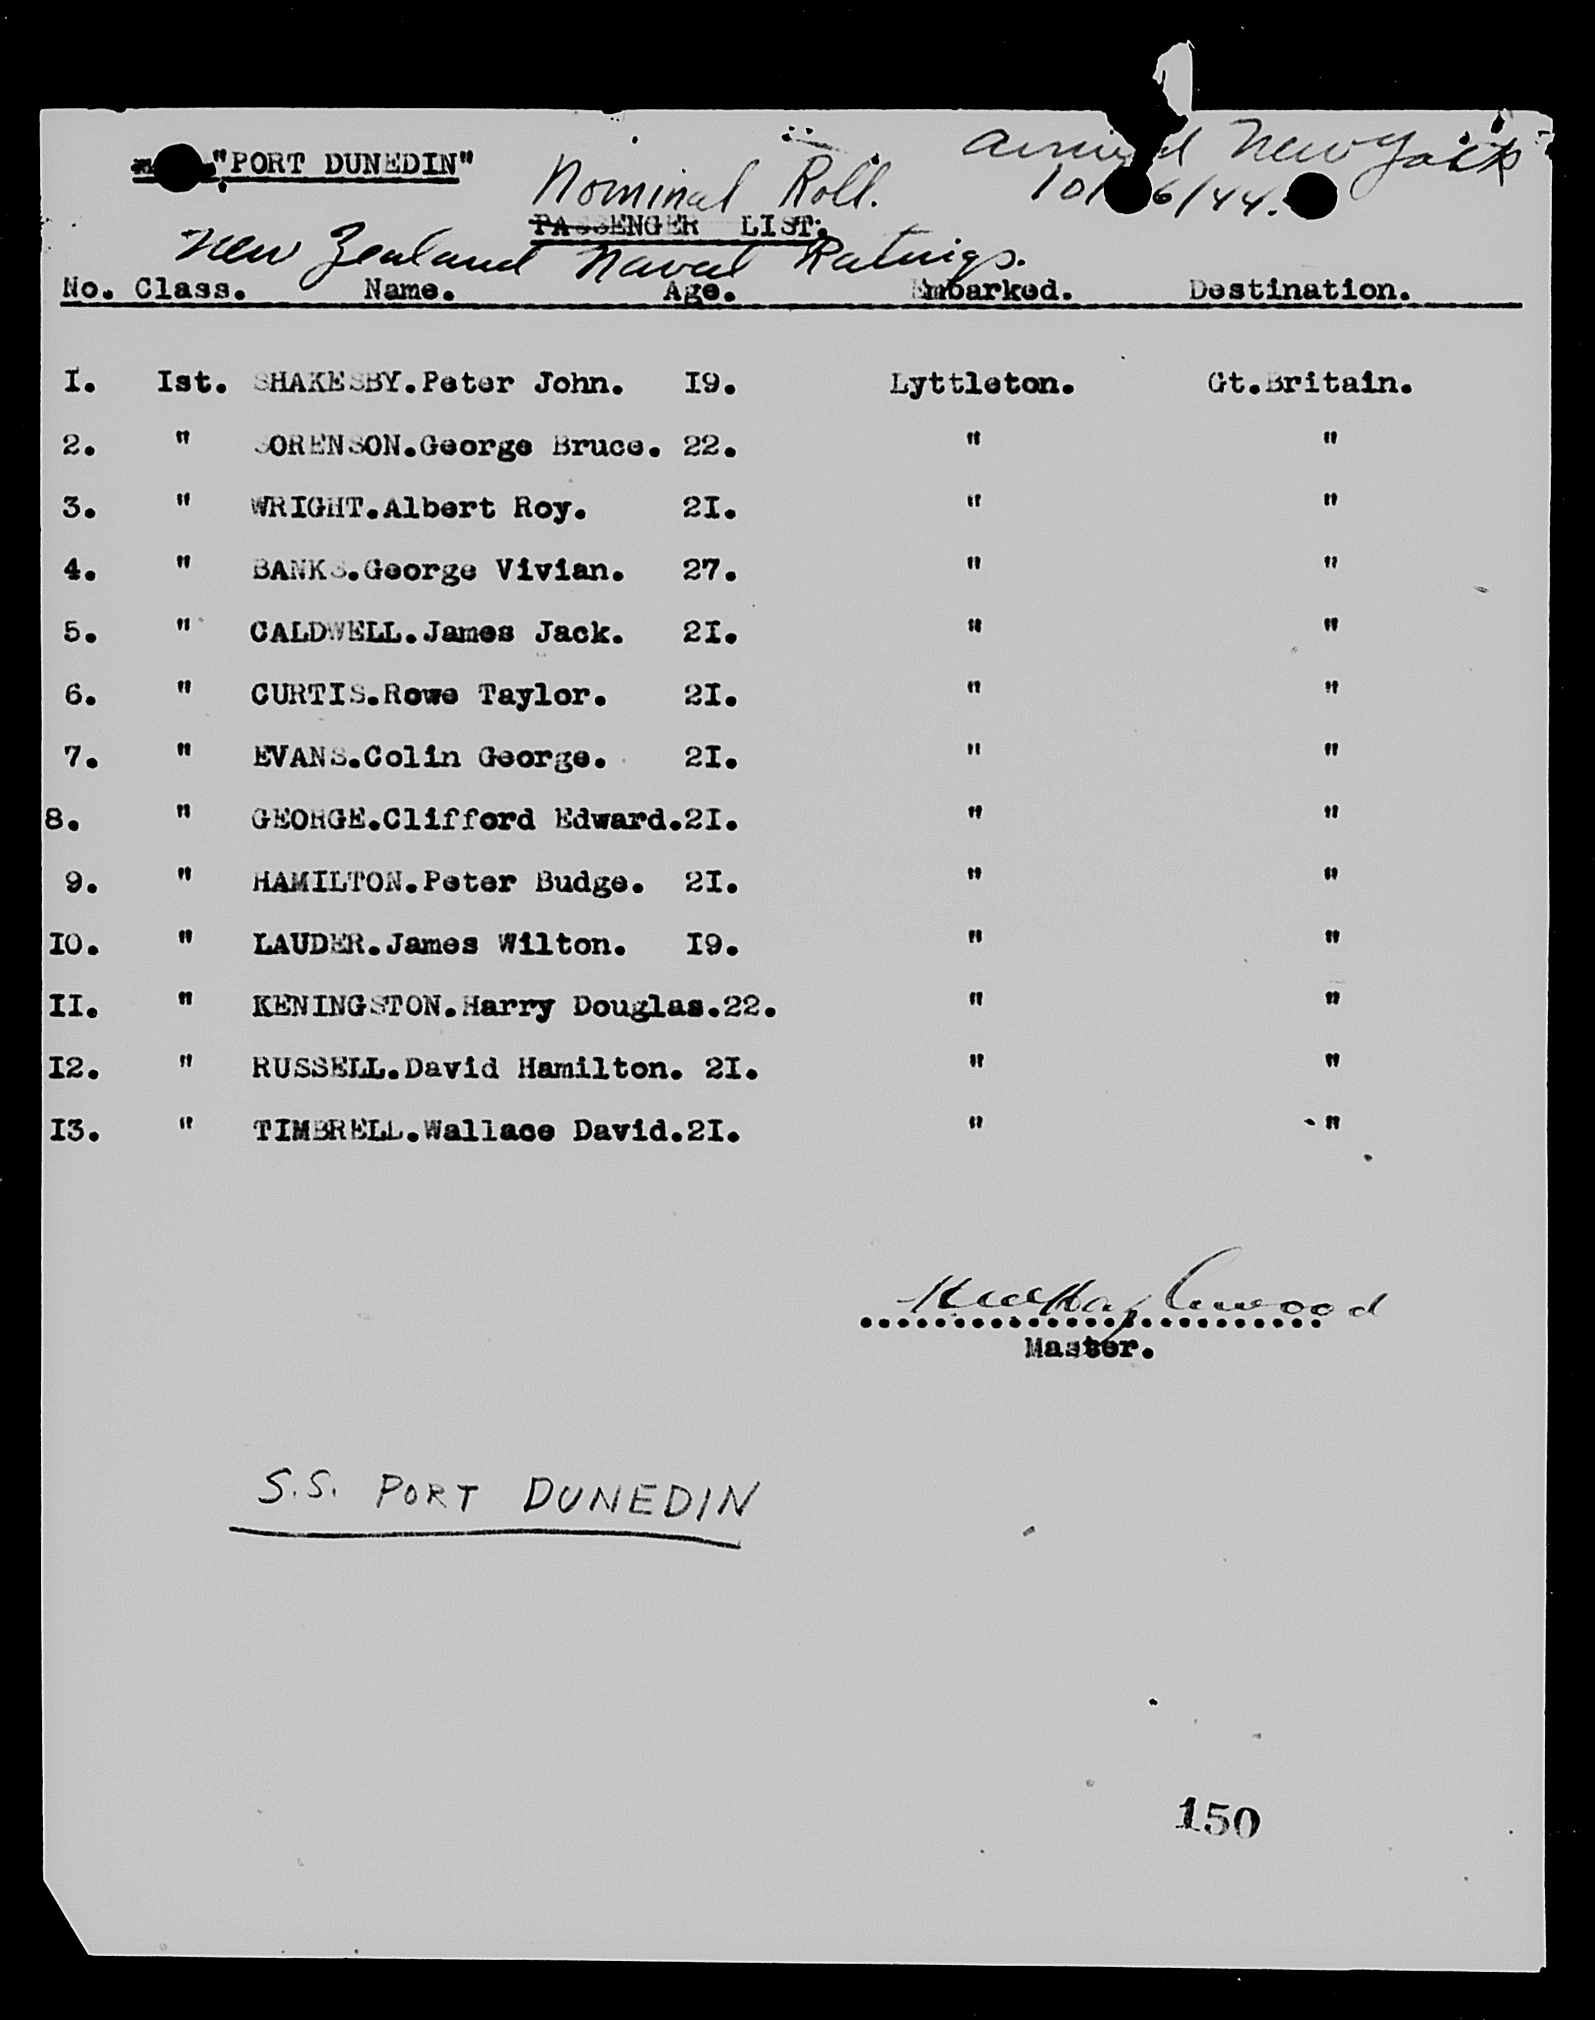 "PORT DUNEDIN"
arrived New York
10/6/44.
Nominal Roll.
PASSENGER LIST.
New Zealand Naval Ratings.
No. Class. Name. Age. Embarked. Destination.
I. Ist. SHAKESBY.Peter John. I9. Lyttleton. Gt.Britain.
2. " SORENSON.George Bruce. 22. " "
3. " WRIGHT.Albert Roy. 2I. " "
4. " BANKS.George Vivian. 27. " "
5. " CALDWELL.James Jack. 2I. " "
6. " CURTIS.Rowe Taylor. 2I. " "
7. " EVANS.Colin George. 2I. " "
8. " GEORGE.Clifford Edward.2I. " "
9. " HAMILTON.Peter Budge. 2I. " "
I0. " LAUDER.James Wilton. I9. " "
II. " KENINGSTON.Harry Douglas.22. " "
I2. " RUSSELL.David Hamilton. 2I. " "
I3. " TIMBRELL.Wallace David.2I. " "
Master.
S.S. PORT DUNEDIN
150